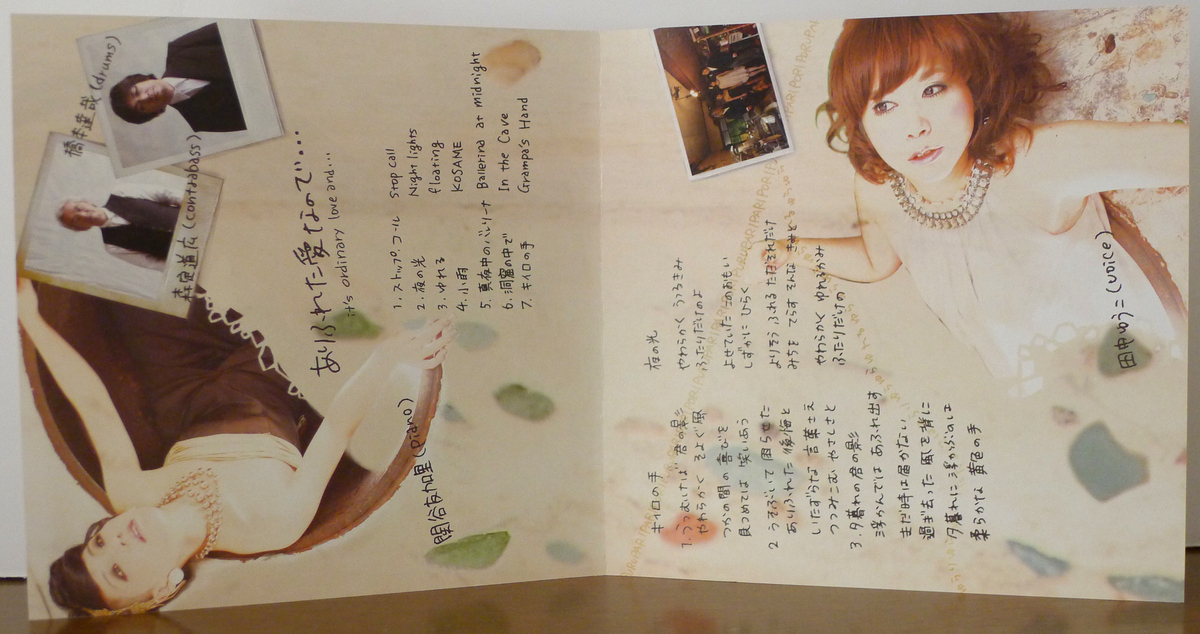 橋本達哉 (drums)
森定道広 (contrabass)
ありふれた愛なので・・・
it's ordinary love and...
1. ストップ コール Stop call
2. 夜の光 Night lights
3. ゆれる floating
4. 小雨 KOSAME
5. 真夜中のバレリーナ Ballerina at midnight
6. 洞窟の中で In the Cave
7. キイロの手 Grampa's Hand
関谷友加里 (piano)
夜の光
やわらかく うつろきみ
ふたりだけのよ
よせていた このおもい
しずかに ひらく
よりそう ふれる ただそれだけ
みちを てらす そんな きみと
やわらかく ゆれるかみ
ふたりだけの
キイロの手
1. うつむけば 君の影
やわらかく そよぐ風
つかの間の 喜びを
見つめては 笑いあう
2 うそぶいて 困らせた
ありふれた 後悔と
いたずらな 言葉さえ
つつみこむ やさしさと
3. 夕暮れの君の影
浮かんでは あふれ出す
まだ時は届かない
過ぎ去った 風を背に
夕暮れに 浮かぶのは
柔らかな 黄色の手
田中ゆうこ (voice)